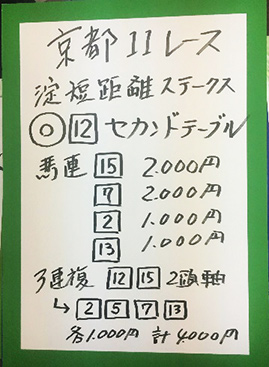 京都11レース
淀短距離ステークス
◎12 セカンドテーブル
馬連 15 2.000円
7 2.000円
2 1.000円
13 1.000円
3連複 12 15 2頭軸
↳ 2 5 7 13
各1.000円 計4000円